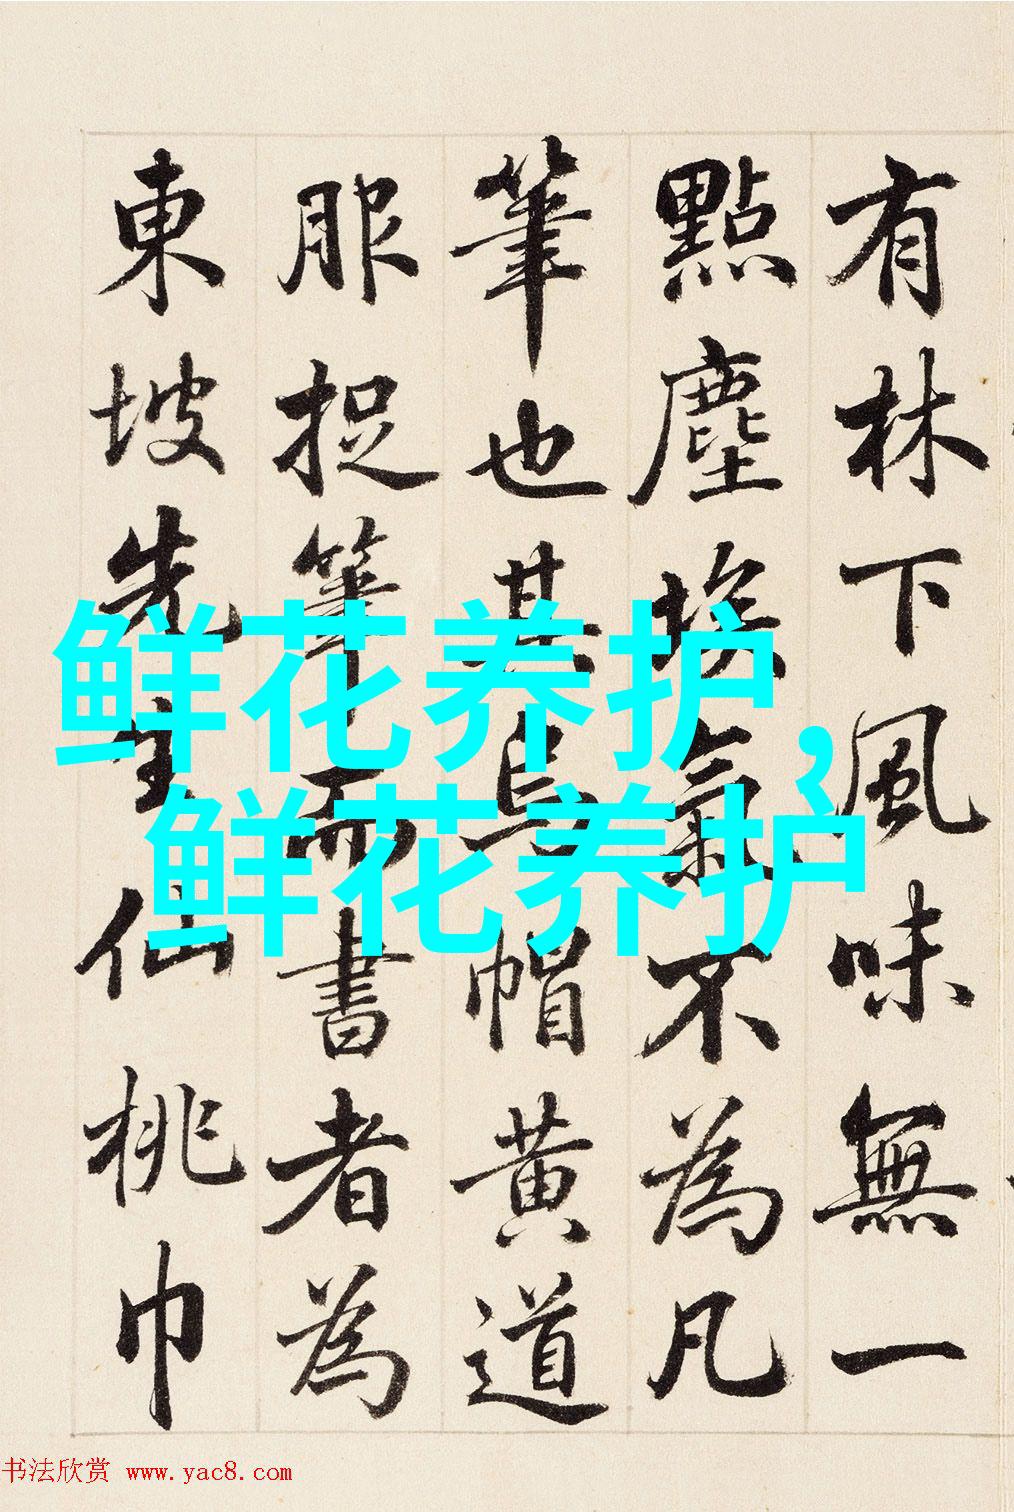 有林下風味無一
點塵埃氣不為凡
筆也其烏帽黃道
服捉筆而書者為
東坡先生仙桃巾
鲜花养护，
鲜花养护
书法欣赏 www.yac8.com